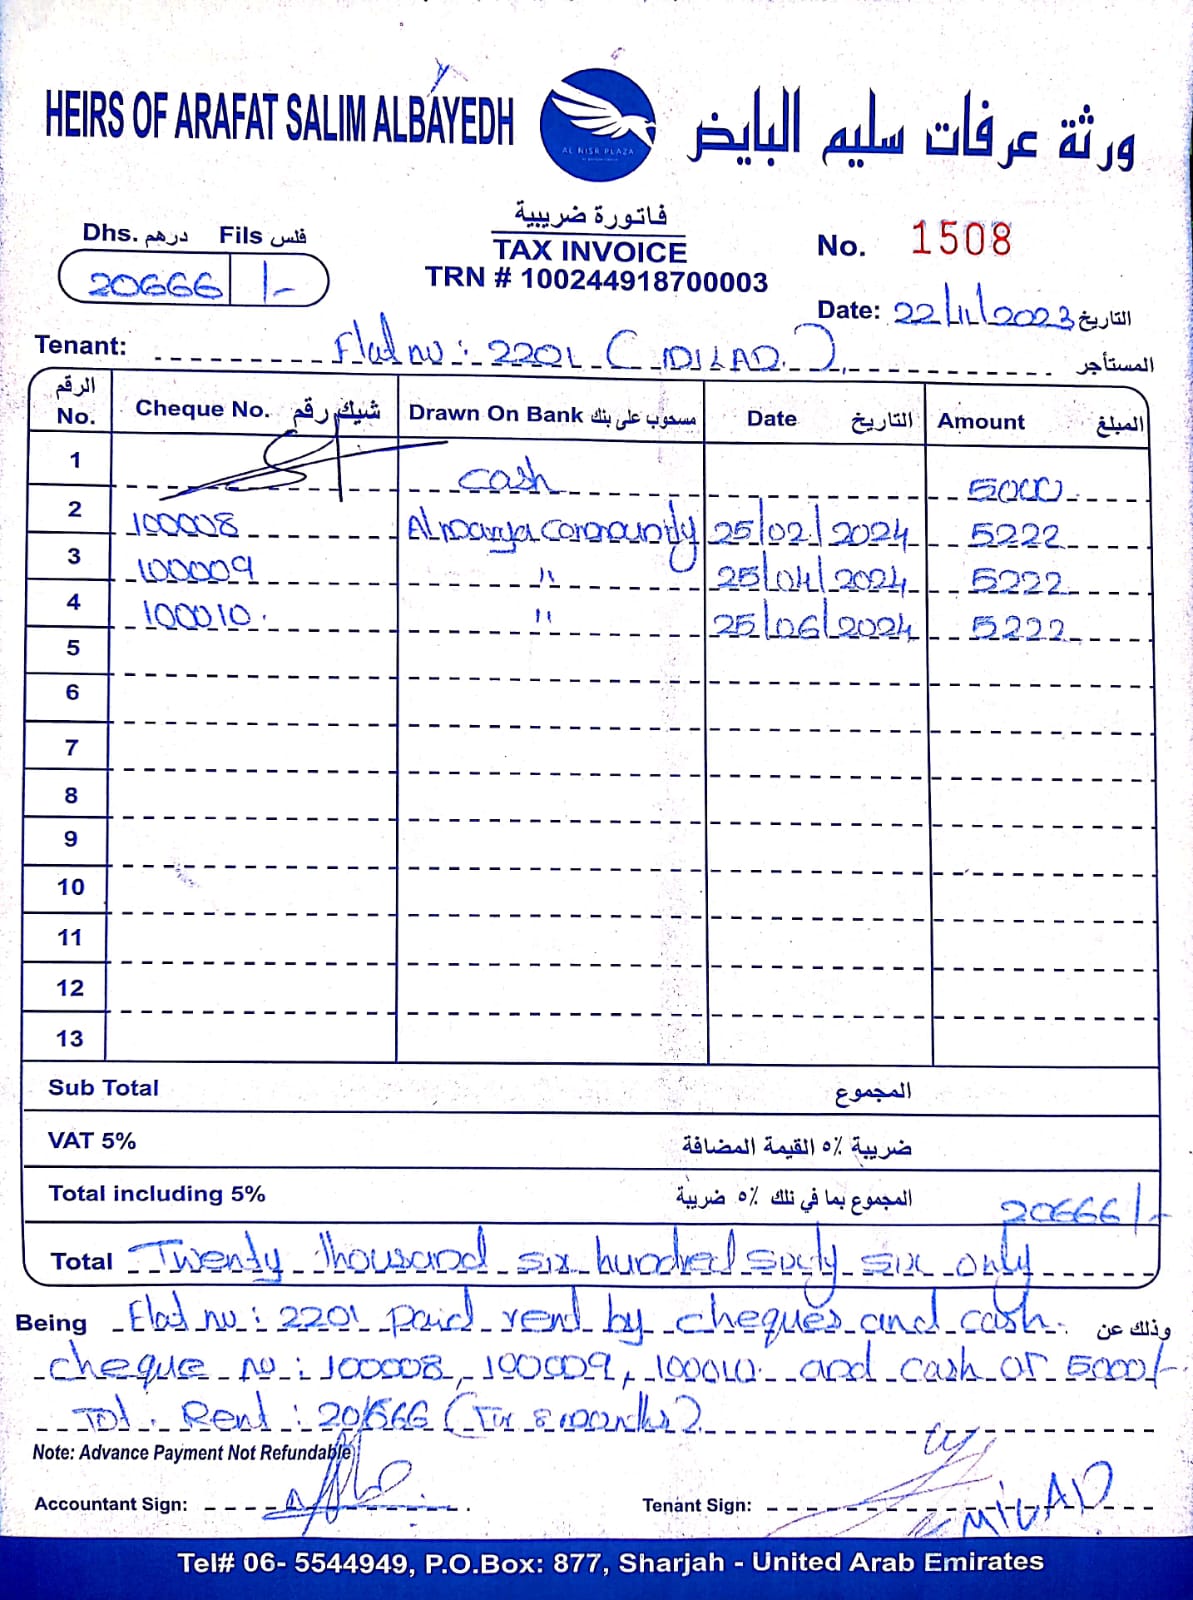 HEIRS OF ARAFAT SALIM ALBAYEDH
AL NISR PLAZA
ورثة عرفات سليم البايض
فاتورة ضريبية
TAX INVOICE
TRN # 100244918700003
Dhs. درهم Fils فلس
20666 /-
No. 1508
Date: 22/11/2023 التاريخ
Tenant: Flat no : 2201 ( MILAD ) المستأجر
الرقم No. Cheque No. شيك رقم Drawn On Bank مسحوب على بنك Date التاريخ Amount المبلغ
1 cash 5000
2 100008 Almarya community 25/02/2024 5222
3 100009 " 25/04/2024 5222
4 100010 " 25/06/2024 5222
5
6
7
8
9
10
11
12
13
Sub Total المجموع
VAT 5% ضريبة ٥٪ القيمة المضافة
Total including 5% المجموع بما في ذلك ٥٪ ضريبة 20666/-
Total Twenty thousand six hundred sixty six only
Being Flat no : 2201 paid rent by cheques and cash. وذلك عن
cheque no : 100008, 100009, 100010. and cash of 5000/-
Tot. Rent : 20666 (For 8 months)
Note: Advance Payment Not Refundable
Accountant Sign:
Tenant Sign: MILAD
Tel# 06- 5544949, P.O.Box: 877, Sharjah - United Arab Emirates